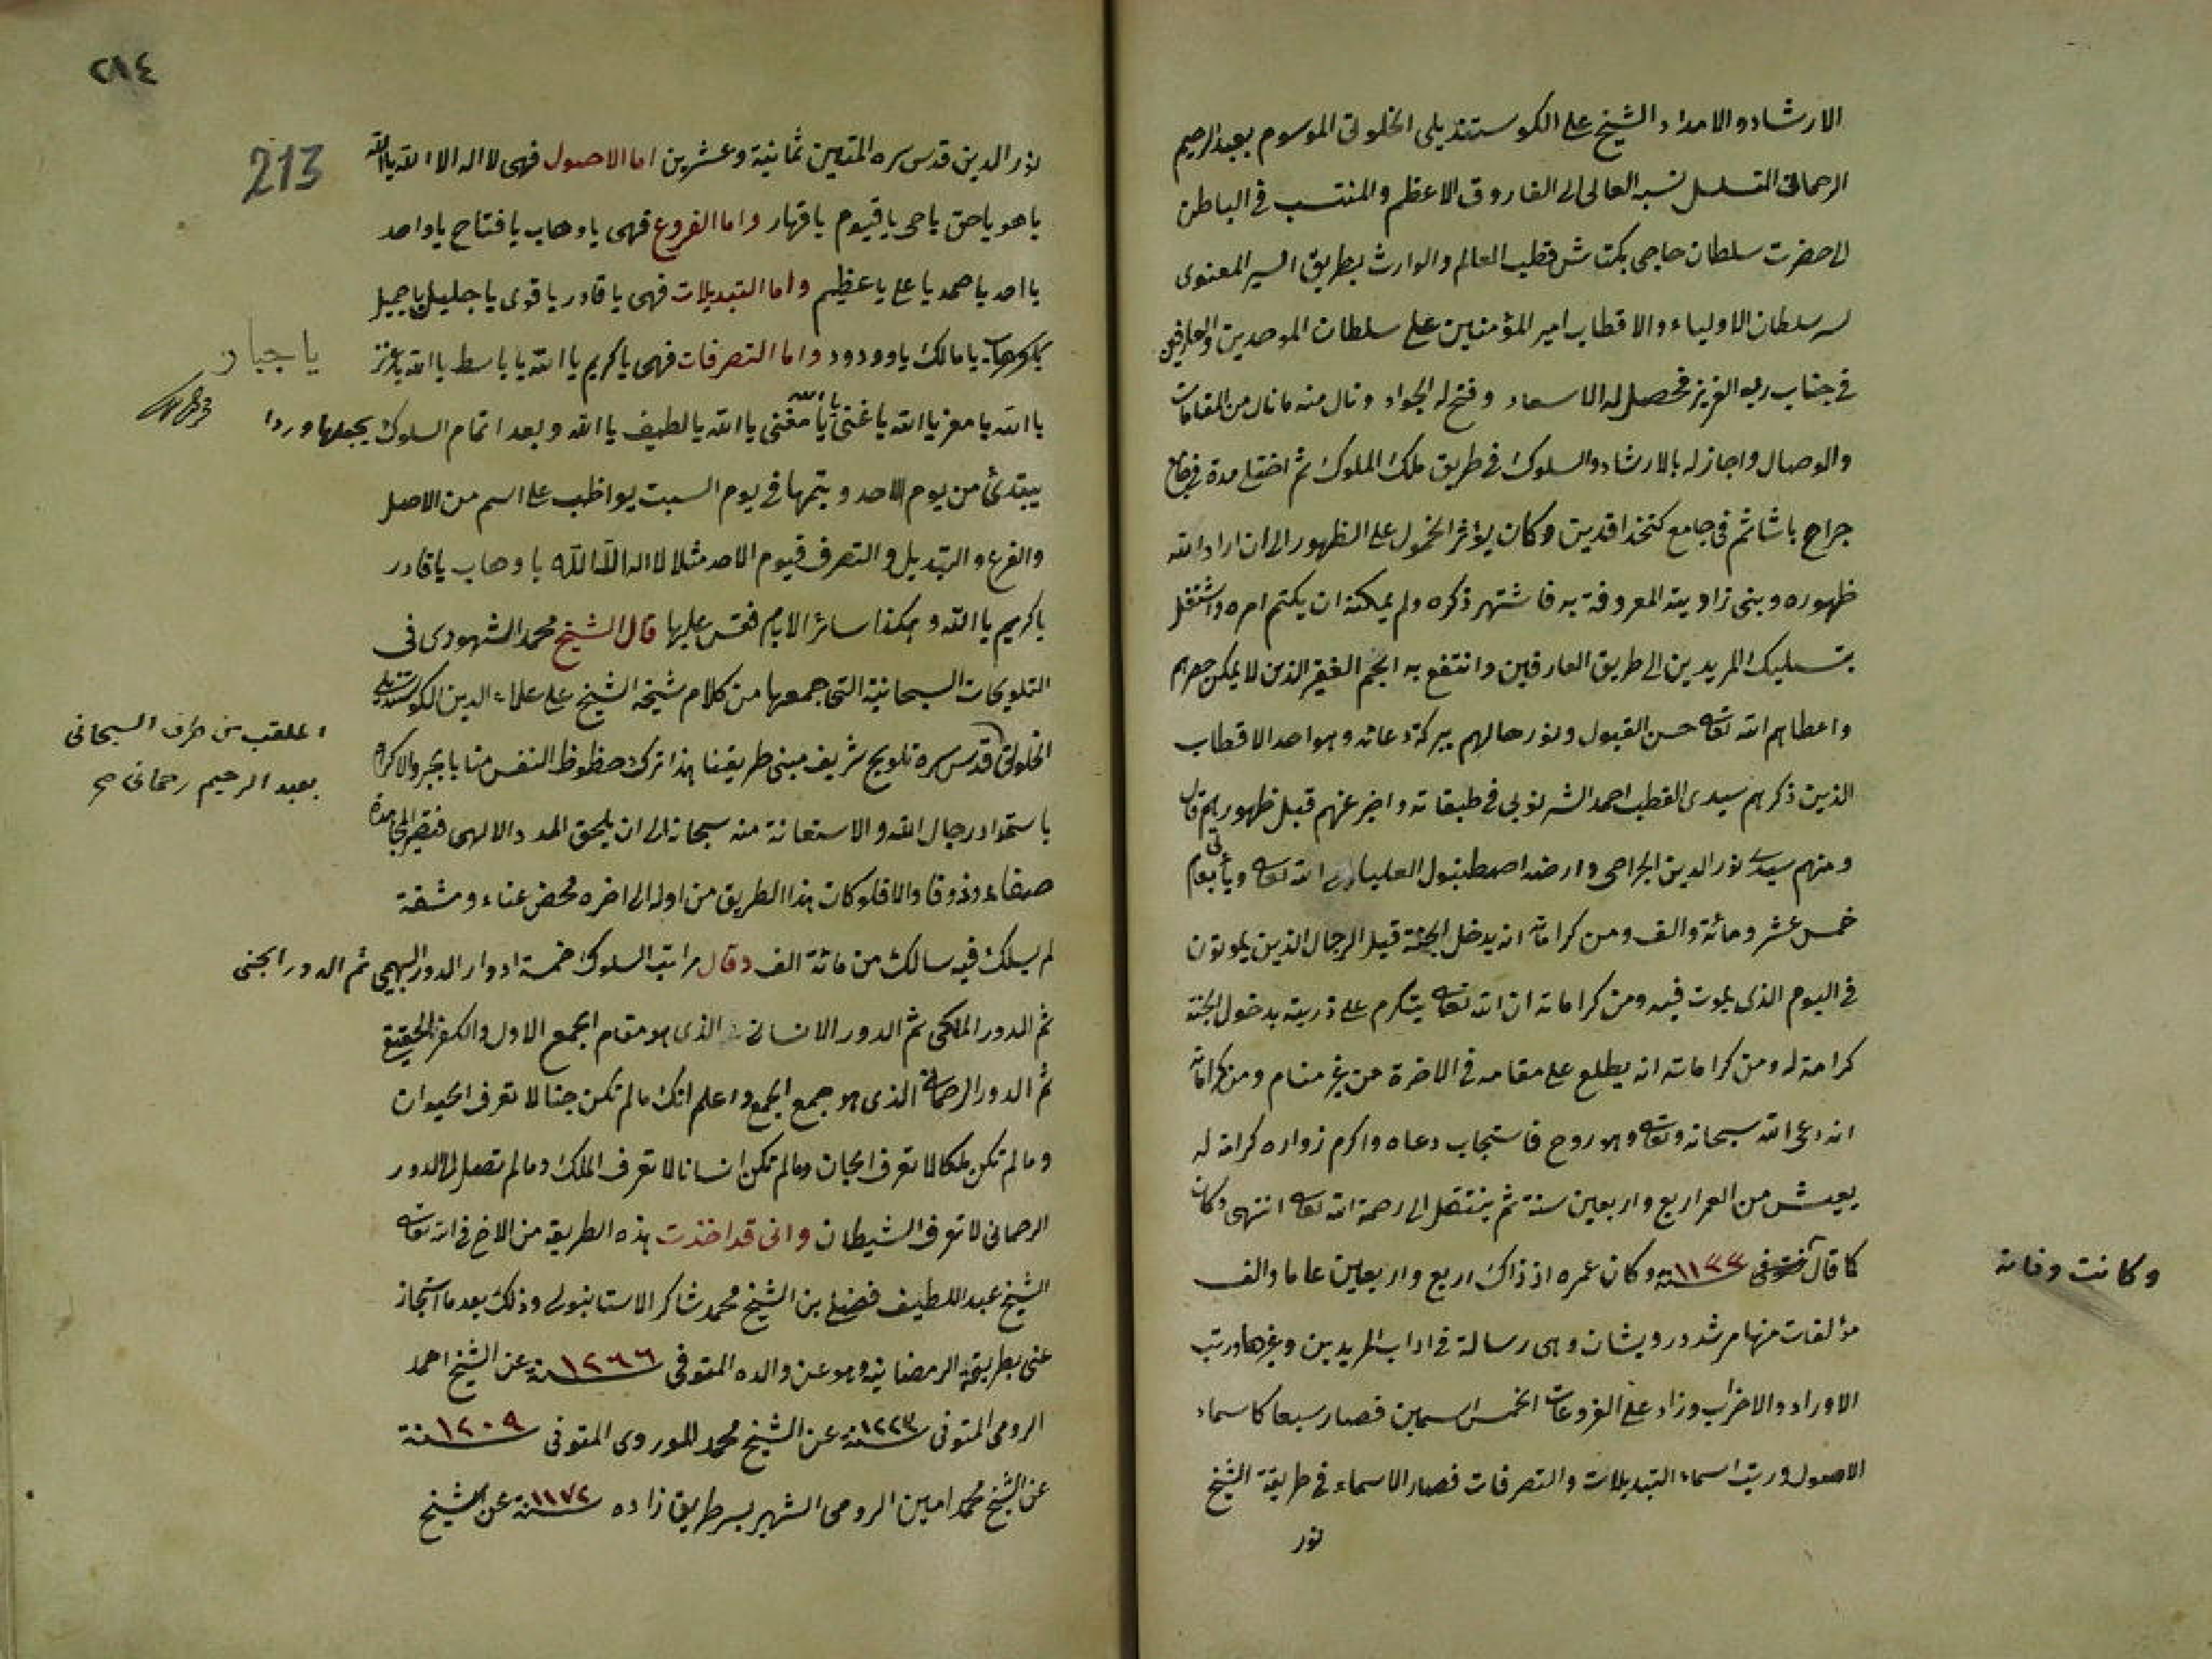 الارشاد والامداد الشيخ على الكوستنديلى الخلوتى الموسوم بعبد الرحيم
الرحمانى المتسلسل نسبه العالى الى الفاروق الاعظم والمنتسب فى الباطن
الى حضرت سلطان حاجى بكتاش قطب العالم والوارث بطريق السير المعنوى
لسر سلطان الاولياء والاقطاب امير المؤمنين على سلطان الموحدين والعارفين
فى جناب ربه العزيز فحصل له الاسعاد وفتح له الجواد ونال منه ما نال من المقامات
والوصال واجاز له بالارشاد والسلوك فى طريق ملك الملوك ثم اختفى مدة فى جامع
جراح باشا ثم فى جامع كتخدا قدين وكان يؤثر الخمول على الظهور الى ان اراد الله
ظهوره وبنى زاويته المعروفة به فاشتهر ذكره ولم يمكنه ان يكتم امره واشتغل
بتسليك المريدين الى طريق العارفين وانتفع به الجم الغفير الذين لا يمكن حصرهم
واعطاهم الله تعالى حسن القبول ونور حالهم ببركة دعائه وهو احد الاقطاب
الذين ذكرهم سيدى القطب احمد الشرنوبى فى طبقاته واخبر عنهم قبل ظهورهم قال
ومنهم سيدى نور الدين الجراحى وارضه اصطنبول العليا الله تعالى ويأتى بعام
خمس عشر ومائة والف ومن كراماته انه يدخل الجنة قبل الرجال الذين يموتون
فى اليوم الذى يموت فيه ومن كراماته ان الله تعالى يتكرم على ذريته بدخول الجنة
كرامة له ومن كراماته انه يطلع على مقامه فى الاخرة من غير منام ومن كراماته
انه دعى الله سبحانه وتعالى وهو روح فاستجاب دعاه واكرم زواره كرامة له
يعيش من العمر اربع واربعين سنة ثم ينتقل الى رحمة الله تعالى انتهى وكان
كما قال فتوفى سنة ١١٣٣ وكان عمره اذ ذاك اربع واربعين عاما والف
وكانت وفاته
مؤلفات منها مرشد درويشان وهى رسالة فى اداب المريدين وغيرها ورتب
الاوراد والاحزاب وزاد على الفروعات الخمس اسمين فصار سبعا كاسماء
الاصول ورتب اسماء التبديلات والتصرفات فصار الاسماء فى طريقة الشيخ
نور
٢١٤
213
نور الدين قدس سره المتعين ثمانية وعشرين اما الاصول فهى لا اله الا الله يا الله
يا هو يا حق يا حى يا قيوم يا قهار واما الفروع فهى يا وهاب يا فتاح يا واحد
يا احد يا صمد يا على يا عظيم واما التبديلات فهى يا قادر يا قوى يا جليل يا جميل
يا مالك يا ودود واما التصرفات فهى يا كريم يا الله يا باسط يا الله يا عزيز
يا جبار
يا الله يا معز يا الله يا غنى يا الله يا مغنى يا الله يا لطيف يا الله وبعد اتمام السلوك يجعلها وردا
يبتدئ من يوم الاحد ويتمها فى يوم السبت يواظب على اسم من الاصل
والفرع والتبديل والتصرف فيوم الاحد مثلا لا اله الا الله يا وهاب يا قادر
يا كريم يا الله وهكذا سائر الايام فقس عليها قال الشيخ محمد الشهودى فى
التلويحات السبحانية التى جمعها من كلام شيخه الشيخ على علاء الدين الكوستنديلى
الملقب من طرف السبحانى
بعبد الرحيم رحمانى صح
الخلوتى قدس سره تلويح شريف مبنى طريقنا هذا ترك حظوظ النفس منا بالجبر والاكراه
باستمداد رجال الله والاستعانة منه سبحانه الى ان يلحق المدد الالهى فتصير المجاهدة
صفاء وذوقا والا فلو كان هذا الطريق من اوله الى اخره محض عناء ومشقة
لم يسلك فيه سالك من مائة الف وقال مراتب السلوك خمسة ادوار الدور البهيمى ثم الدور الجنى
ثم الدور الملكى ثم الدور الانسانى الذى هو مقام الجمع الاول والكفر الحقيقى
ثم الدور الرحمانى الذى هو جمع الجمع واعلم انك ما لم تكن جنا لا تعرف الحيوان
وما لم تكن ملكا لا تعرف الجان وما لم تكن انسانا لا تعرف الملك وما لم تصل الى الدور
الرحمانى لا تعرف الشيطان وانى قد اخذت هذه الطريقة من الاخ فى الله تعالى
الشيخ عبد اللطيف فضلى بن الشيخ محمد شاكر الاستانبولى وذلك بعد ما استجاز
عنى بطريقة الرمضانية وهو عن والده المتوفى سنة ١٢٦٦ عن الشيخ احمد
الرومى المتوفى سنة ١٢٢٣ عن الشيخ محمد المورוى المتوفى سنة ١٢٠٩
عن الشيخ محمد امين الرومى الشهير بسر طريق زاده سنة ١١٧٢ عن الشيخ